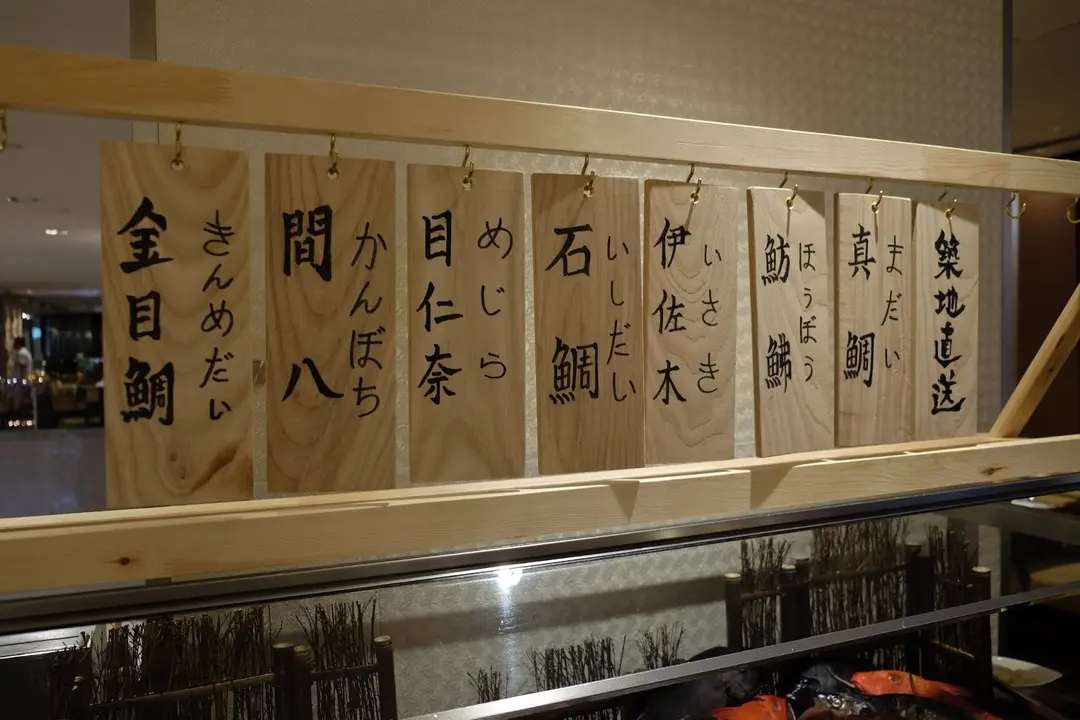 築地直送
真鯛
まだい
魴鮄
ほうぼう
伊佐木
いさき
石鯛
いしだい
目仁奈
めじら
間八
かんぼち
金目鯛
きんめだい